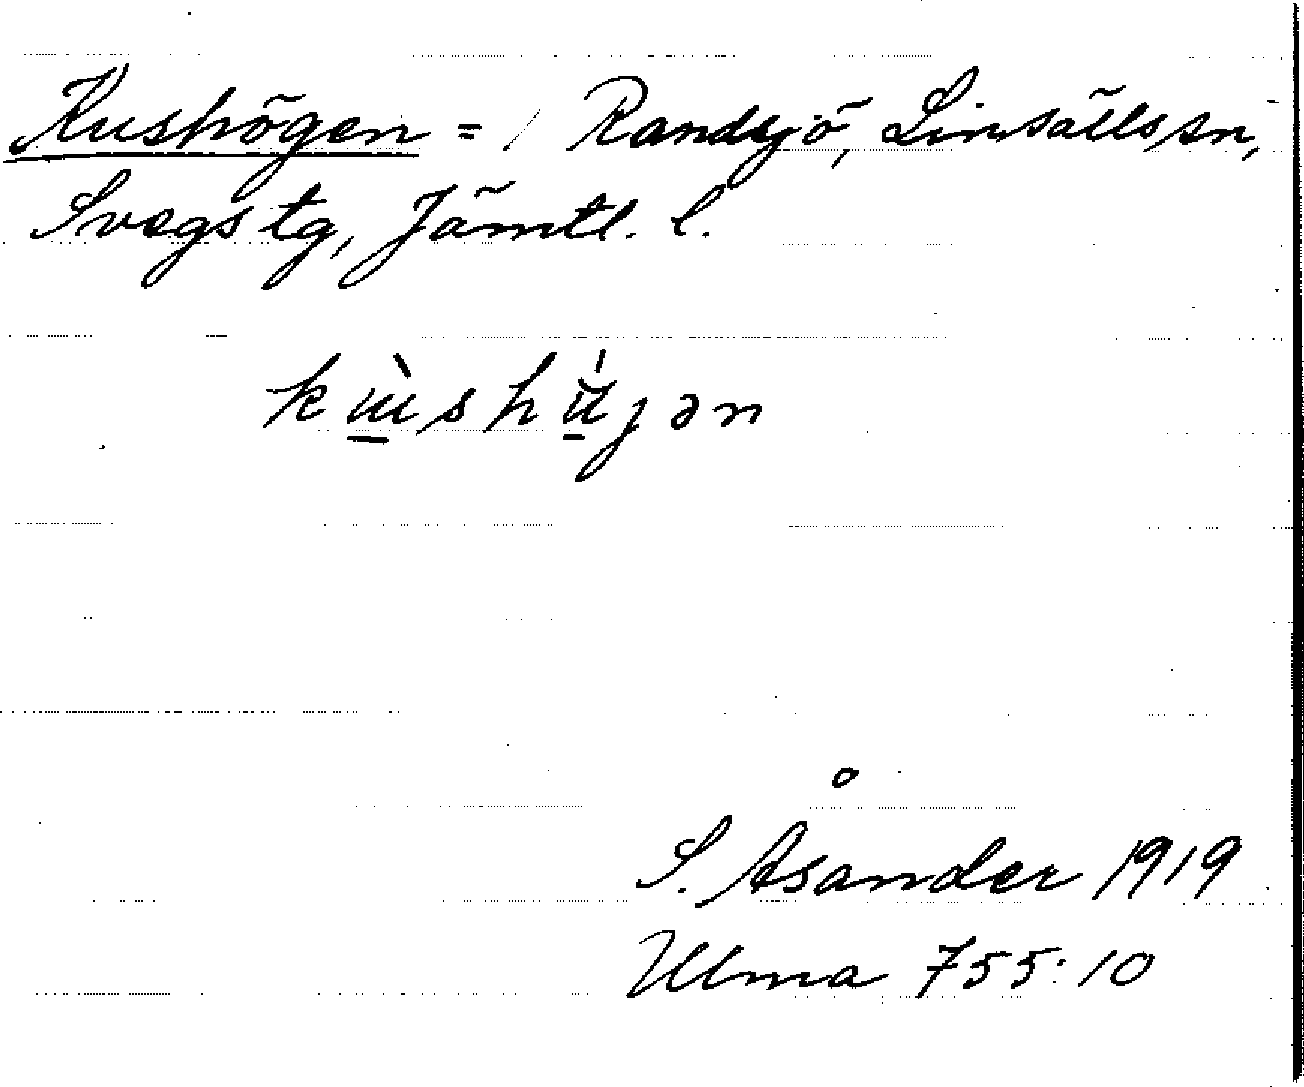 Kushögen = / Randsjö, Linsälls sn,
Svegs tg, Jämtl. l.
S. Åsander 1919
Ulma 755:10